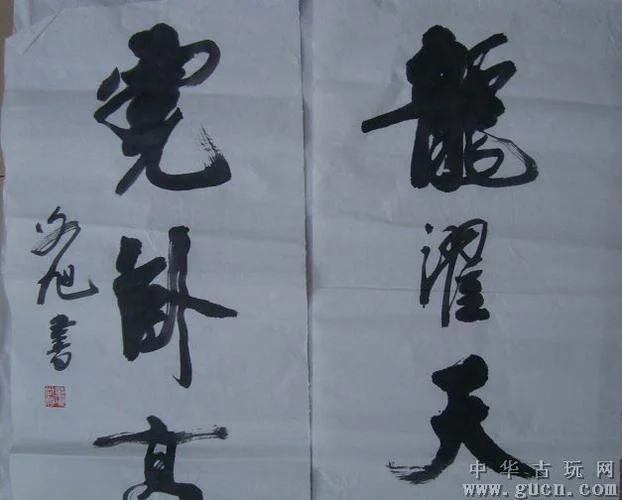 龍躍天
虎卧
旭書
中华古玩网
www.gucn.com